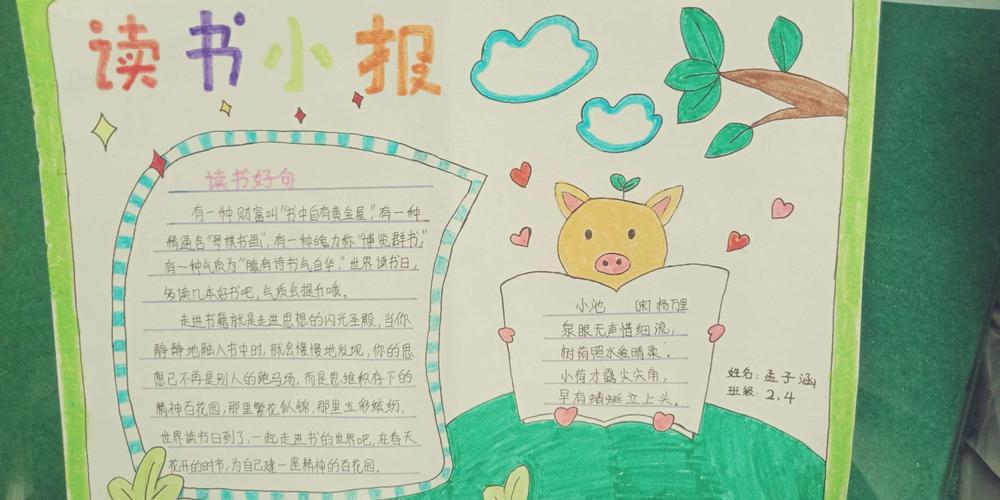 读书小报
读书好句
有一种财富叫“书中自有黄金屋”，有一种
精通名“琴棋书画”，有一种魄力称“博览群书”，
有一种气质为“腹有诗书气自华，”世界读书日，
多读几本好书吧，气质会提升哦。
走进书籍就是走进思想的闪光圣殿，当你
静静地融入书中时，就会慢慢地发现，你的思
想已不再是别人的跑马场，而是思维积存下的
精神百花园，那里繁花似锦，那里五彩缤纷，
世界读书日到了，一起走进书的世界吧，在春天
花开的时节，为自己建一座精神的百花园.
小池 [宋]杨万里
泉眼无声惜细流，
树荫照水爱晴柔。
小荷才露尖尖角，
早有蜻蜓立上头。
姓名：孟子涵
班级：2.4